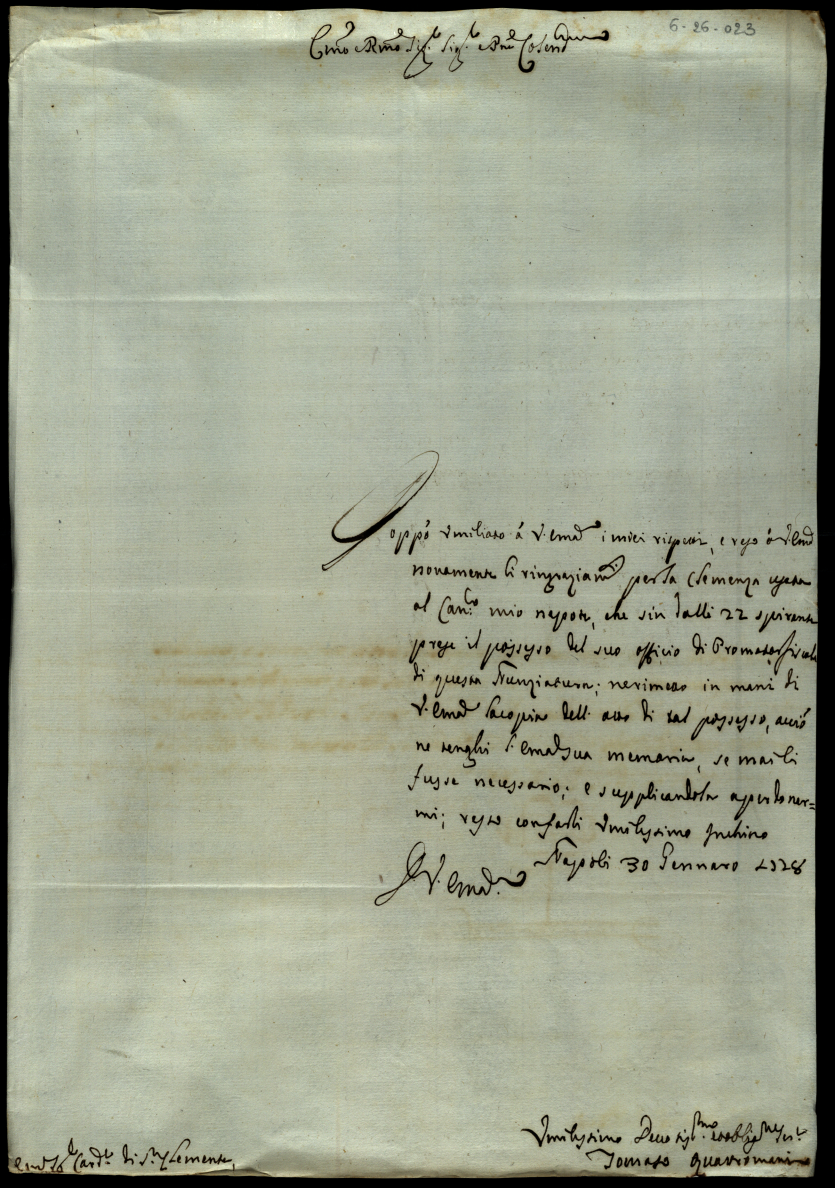 6-26-023
Emo e Rmo Sig.r Sig.r e Pne Colend
Doppò umiliato à V. Emã i miei rispetti, e reso à V. Emã
novamente li ringraziam.ti per la Clemenza usata
al Can.co mio nepote, che sin dalli 22 spirante
prese il possesso del suo officio di Promotor fiscale
di questa Nunziatura; ne rimetto in mani di
V. Emã la copia dell' atto di tal possesso, acciò
ne tenghi V. Emã sua memoria, se mai li
fusse necessario; e supplicandola a perdonar=
mi; resto con farli umilissimo Inchino
Napoli 30 Gennaro 1728
D V. Emã.
Umilissimo Devotiss.mo et obblig.mo Ser.re
Card.le di S. Clemente,
Tomaso Quattromani